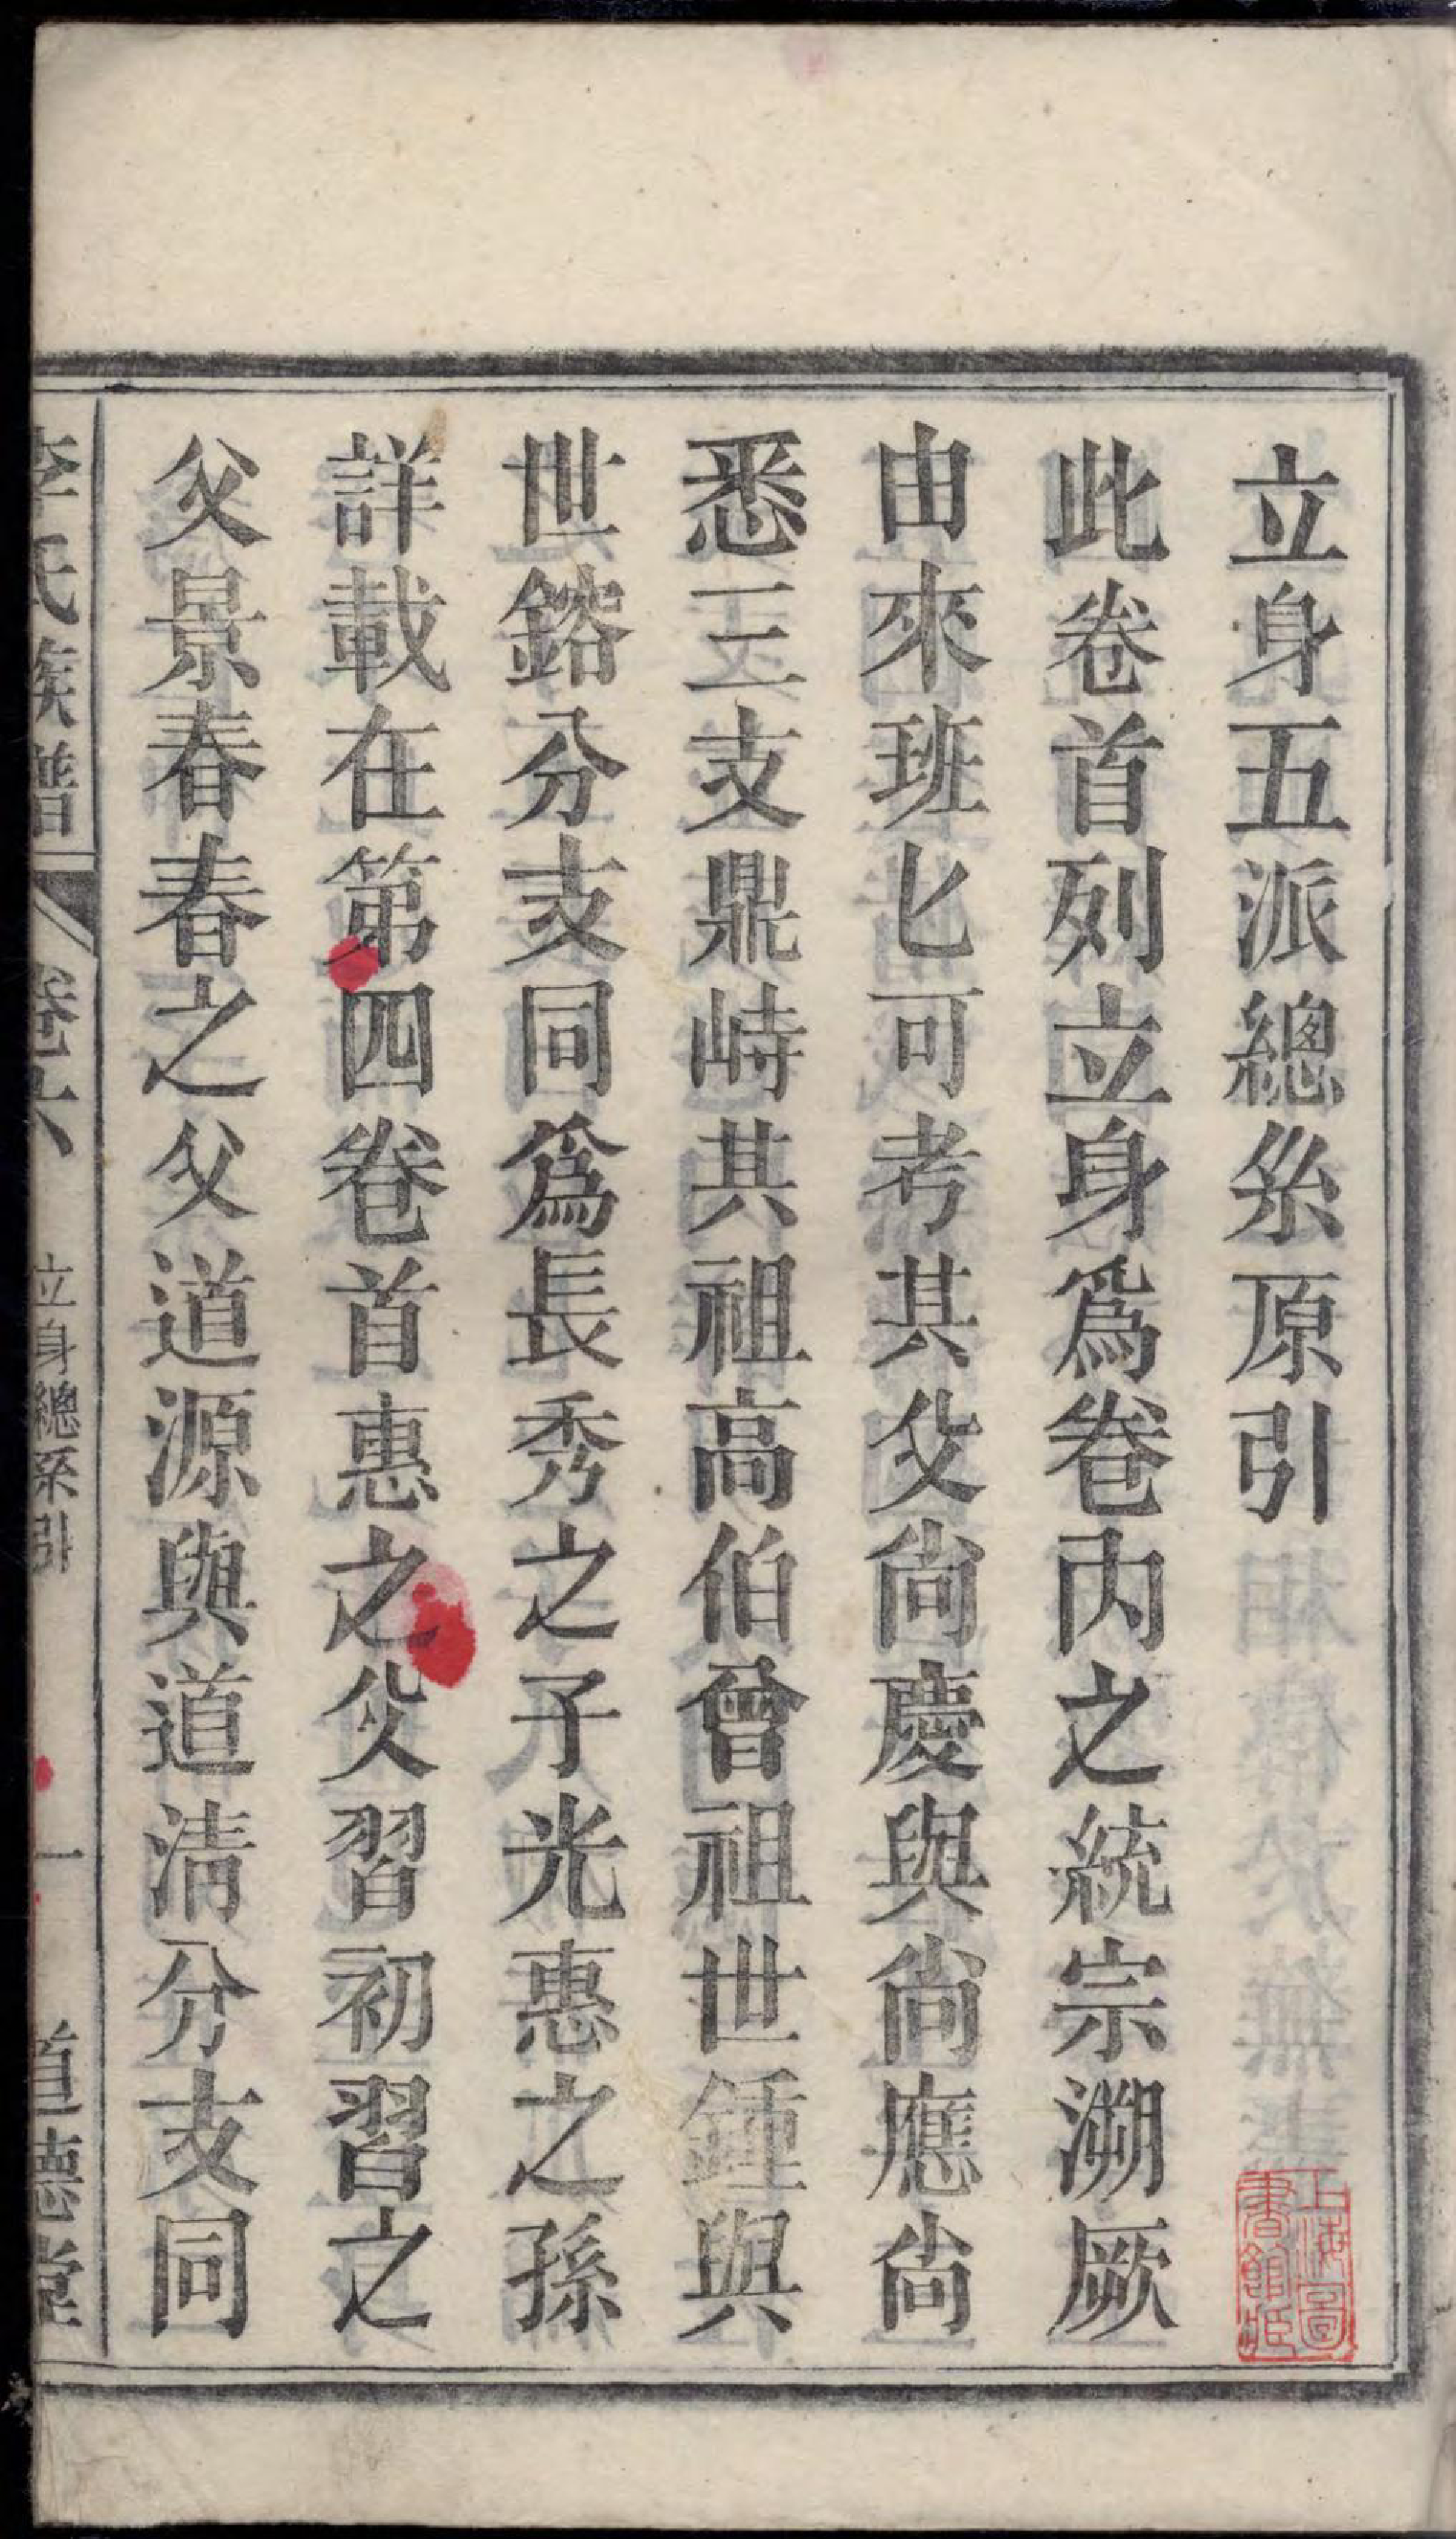 立身五派總系原引
此卷首列立身爲卷内之統宗溯厥
由來班匕可考其父尙慶與尙應尙
悉三支鼎峙其祖高伯曾祖世鍾與
世鎔分支同爲長秀之子光惠之孫
詳載在第四卷首惠之父習初習之
父景春春之父道源與道清分支同
李氏族譜
卷六
立身總系引
一
道德堂
上海圖
書館